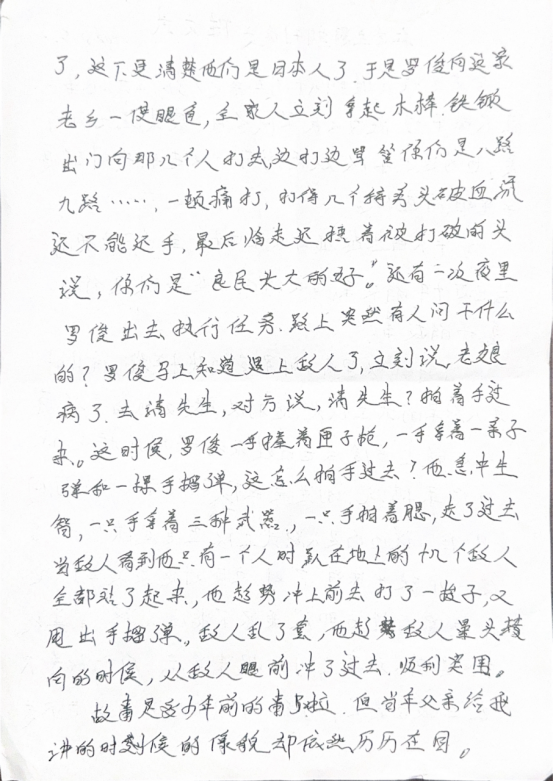 了，这下更清楚他们是日本人了.于是罗俊向这家
老乡一使眼色，全家人立刻拿起木棒.铁锨
出门向那几个人打去，边打边骂管你们是八路
九路……，一顿痛打，打得几个特务头破血流
还不能还手，最后临走还摸着被打破的头
说，你们是“良民大大的好。”还有一次夜里
罗俊出去执行任务.路上突然有人问干什么
的？罗俊马上知道遇上敌人了，立刻说，老娘
病了.去请先生，对方说，请先生？拍着手过
来。这时候，罗俊一手握着匣子枪，一手拿着一条子
弹和一颗手榴弹，这怎么拍手过去？他急中生
智，一只手拿着三种武器，一只手拍着腿，走了过去
当敌人看到他只有一个人时趴在地上的十几个敌人
全部站了起来，他趁势冲上前去打了一梭子，又
甩出手榴弹，敌人乱了套，他趁敌人晕头转
向的时候，从敌人眼前冲了过去.顺利突围。
故事是多少年前的事啦.但当年父亲给我
讲的时候的像貌却依然历历在目。